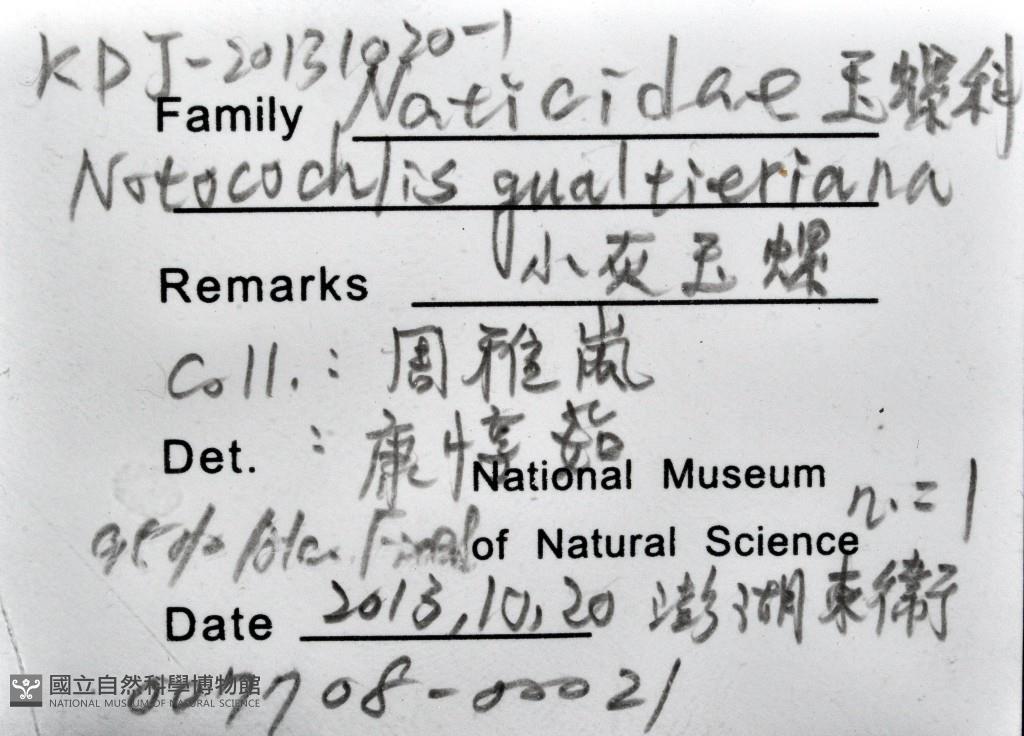 KDJ-20131020-1
Family Naticidae 玉螺科
Notocochlis gualtieriana
Remarks 小灰玉螺
Coll.: 周雅嵐
Det. : 康惇
National Museum
n.=1
95% Final
of Natural Science
Date 2013,10,20 澎湖東衛
007708-00021
國立自然科學博物館
NATIONAL MUSEUM OF NATURAL SCIENCE